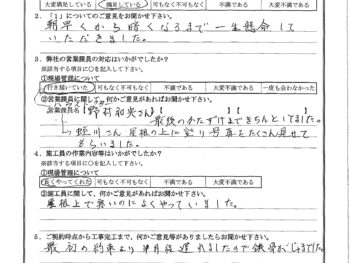 大変満足である 満足している 可もなく不可もなく 不満である 大変不満である
2．「1」についてのご意見をお聞かせ下さい。
朝早くから暗くなるまで一生懸命して
いただきました。
3．弊社の営業課員の対応はいかがでしたか？
※該当する項目に○を記入して下さい。
①現場管理について
行き届いていた 可もなく不可もなく 不満である 大変不満である 一度も会わなかった
②営業課員に関して、何かご意見があればお聞かせ下さい。
営業課員名【野村 さん】【 】
最後のかたずけまできちんとしてました。
さん 屋根の上に登り写真をたくさん見せて
もらいました。
4．施工員の作業内容等はいかがでしたか？
※該当する項目に○を記入して下さい。
①現場管理について
良くやってくれた 可もなく不可もなく 不満である 大変不満である
②施工員に関して、何かご意見があればお聞かせ下さい。
屋根上で暑いのによくやっていました。
5．ご契約時点から工事完了まで、何かご意見等がありましたらお聞かせ下さい。
最初の約束より 遅れましたので